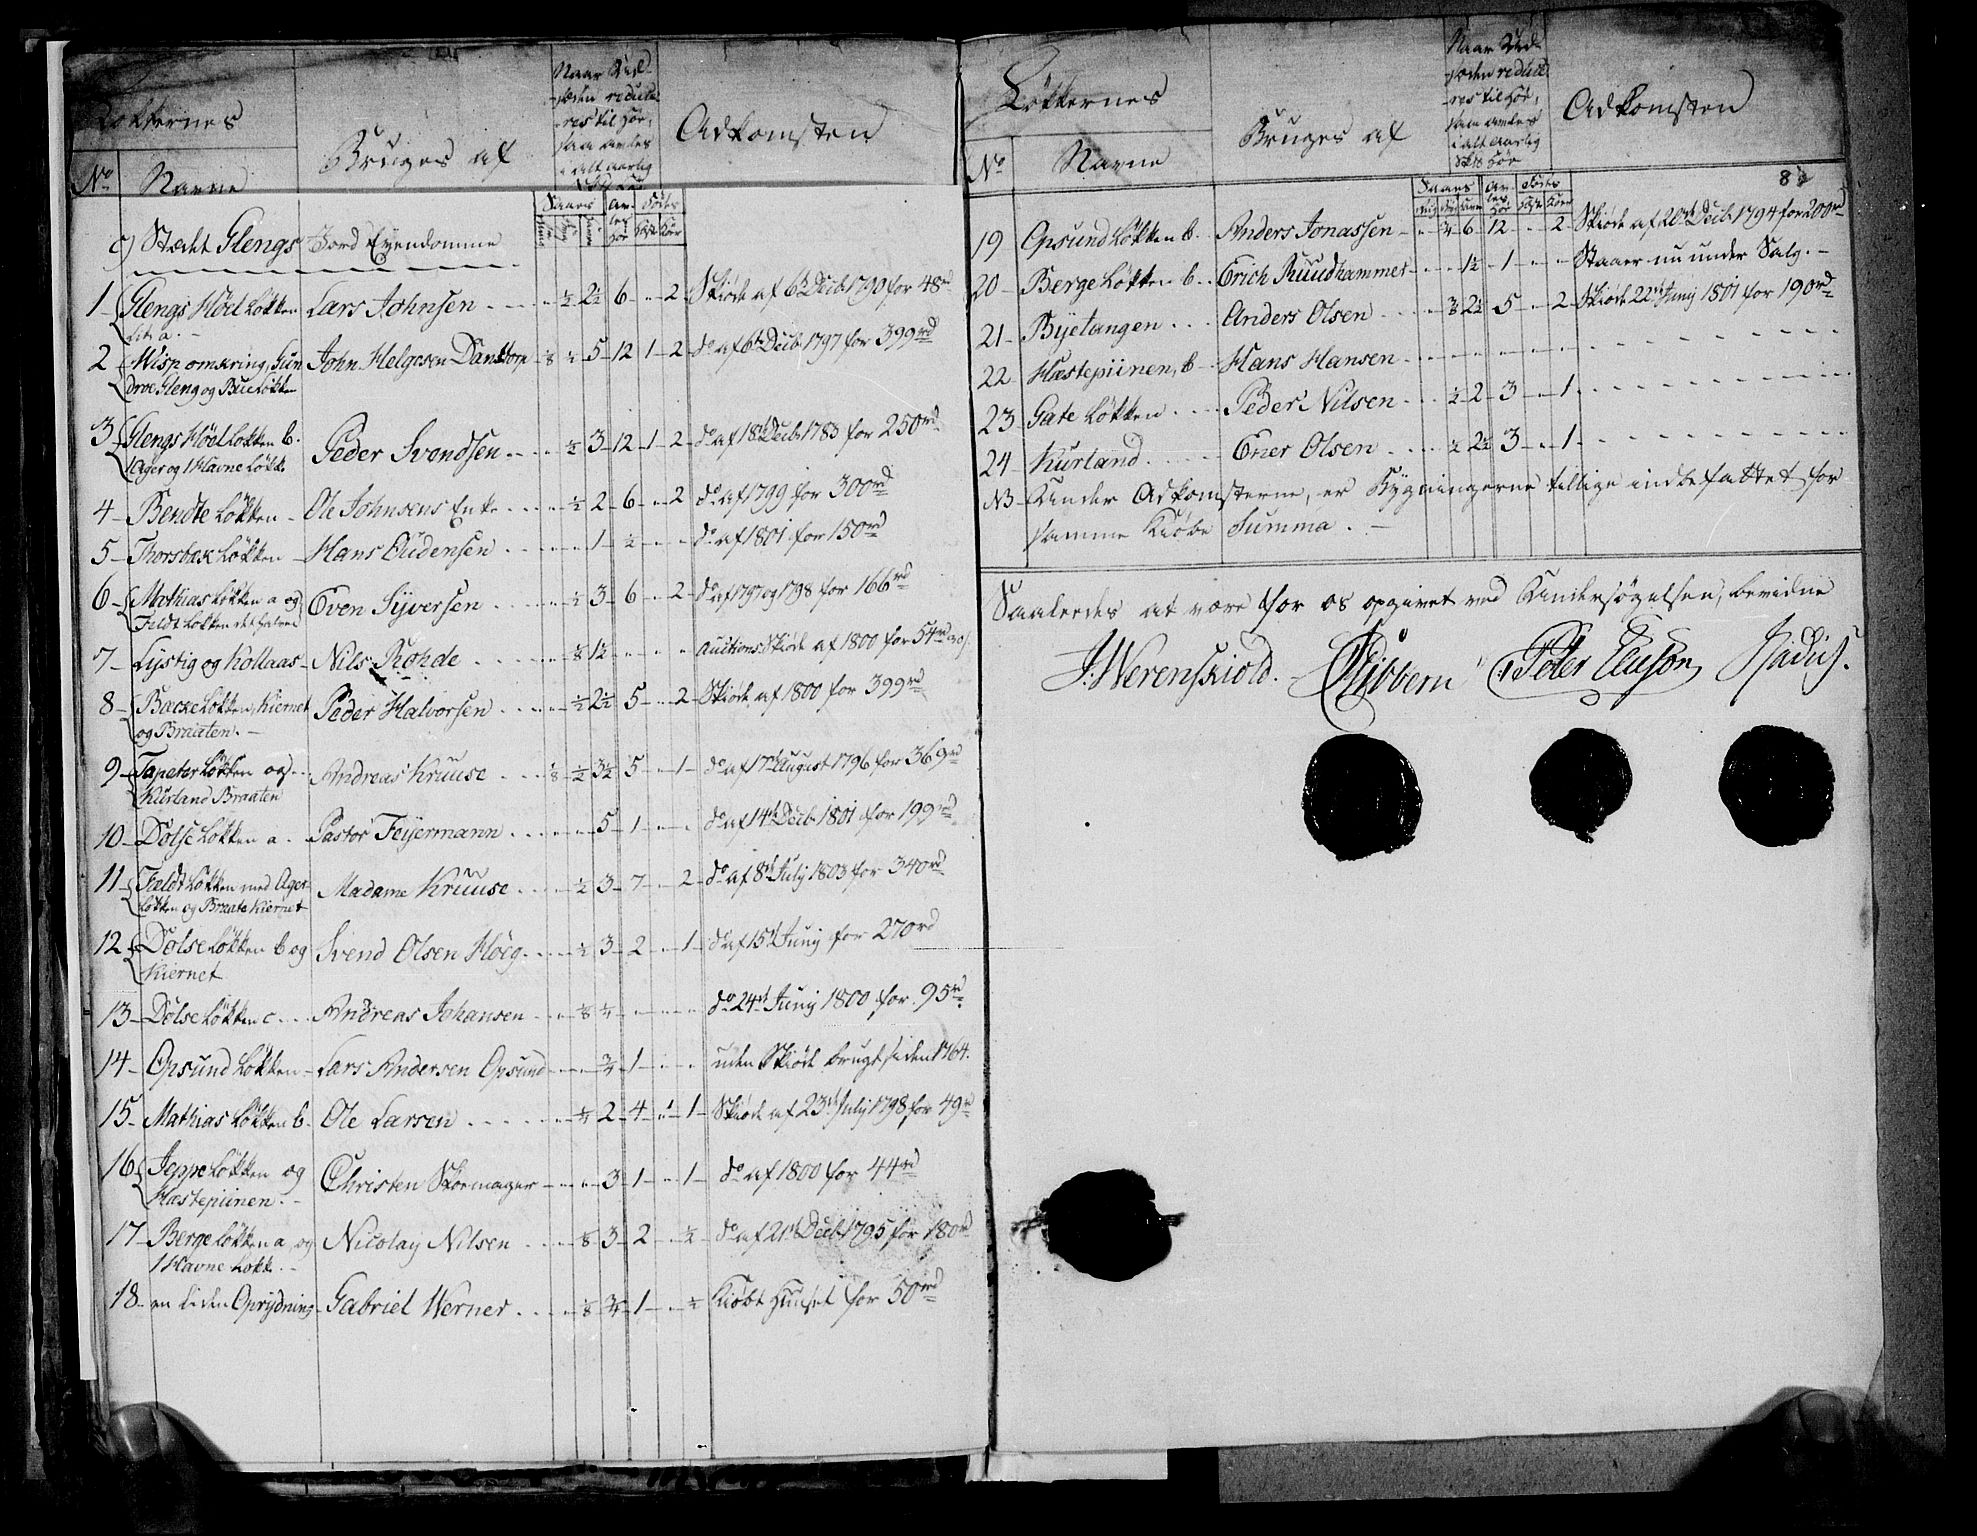 Løkkernes
No
Navne
Bruges af
Naar Ud-
sæden reduce
res til Hør,
saa avles
i alt aarlig
Adkomsten
Saaes
Av-
les
Hør
Fødes
Køer
c) Stædet Glengs Jord Eyendomme
1 Glengs Høel Løkken Lars Johnsen ½ 2½ 6 2 Skiøde af 6te Decb 1790 for 48rd
Litr a.
2 Wisp omkring, Gun John Helgesen Danstorp ⅛ ½ 5 12 1 2 do af 6te Decb 1797 for 399rd
droe Gleng og Bue Løkken
3 Glengs Høel Løkken b. Peder Svendsen ½ 3 12 1 2 do af 18de Decb 1783 for 250rd
1 Ager og 1 Havne Løkke
4 Bendte Løkken Ole Johnsens Enke ½ 2 6 2 do af 1799 for 300rd
5 Thorsbak Løkken Hans Oudensen 1 ½ do af 1801 for 150rd
6 Mathias Løkken a og Even Syversen ½ 3 6 2 do af 1797 og 1798 for 166rd
Feldt Løkken det halve
7 Lystig og Kollaas Nils Rohde ⅛ 1½ Auctions Skiøde af 1800 for 54rd
8 Backe Løkken, Kiernet Peder Halvorsen ½ 2½ 5 2 Skiøde af 1800 for 399rd
og Braaten.
9 Tapeter Løkken og Andreas Kruuse ⅛ ½ 3½ 5 1 do af 17de August 1796 for 369rd
Kurland Braaten
10 Dolse Løkken a. Pastor Feyermann 5 1 do af 14de Decb 1801 for 199rd
11 Fældt Løkken med Ager Madame Kruuse ½ 3 7 2 do af 8de July 1803 for 340rd
Løkken og Braate Kiernet
12 Dolse Løkken b og Svend Olsen Høeg ½ 3 2 1 do af 15de Juny for 270rd
Kiernet
13 Dolse Løkken c Andreas Johansen ⅛ ¾ do 24de Juny 1800 for 95rd
14 Opsund Løkken Lars Andersen Opsund ¾ 1 uden Skiøde brugt siden 1764.
15 Mathias Løkken b. Ole Larsen ¼ 2 4 1 Skiøde af 23de July 1798 for 49rd
16 Jeppe Løkken og Christen Skomager 3 1 1 do af 1800 for 44rd
Hæstepiinen.
17 Berge Løkken a, og Nicolay Nilsen ⅛ 3 2 ½ do af 21de Decb 1795 for 180rd
1 Havne Løkke.
18 en liden Oprydning Gabriel Werner ⅛ ¾ 1 ½ Kiøbt Huuset for 50rd
Løkkernes
No
Navne
Bruges af
Naar Ud-
sæden reduce
res til Hør,
saa avles
i alt aarlig
Hør
Adkomsten
8
Saaes
Av-
les
Hør
Fødes
Køer
19 Opsund Løkken b. Anders Jonassen ¾ 6 12 2 Skiøde af 20de Decb 1794 for 200rd
20 Berge Løkken b Erich Ruudhammer 1½ 1 Staaer nu under Salg.
21 Byetangen Anders Olsen ¾ 2½ 5 2 Skiøde 22de Juny 1801 for 190rd
22 Hæstepiinen, b Hans Hansen
23 Gate Løkken Peder Nilsen ½ 2 3 1
24 Kurland Ener Olsen ½ 2½ 3 1
NB Under Adkomsterne, er Bygningerne tillige indbefattet for
samme Kiøbe Summa.
Saaledes at være for os opgivet ved Undersøgelsen, bevidne
J. Werenskiold. Sibbern Peter Elieson Radich.